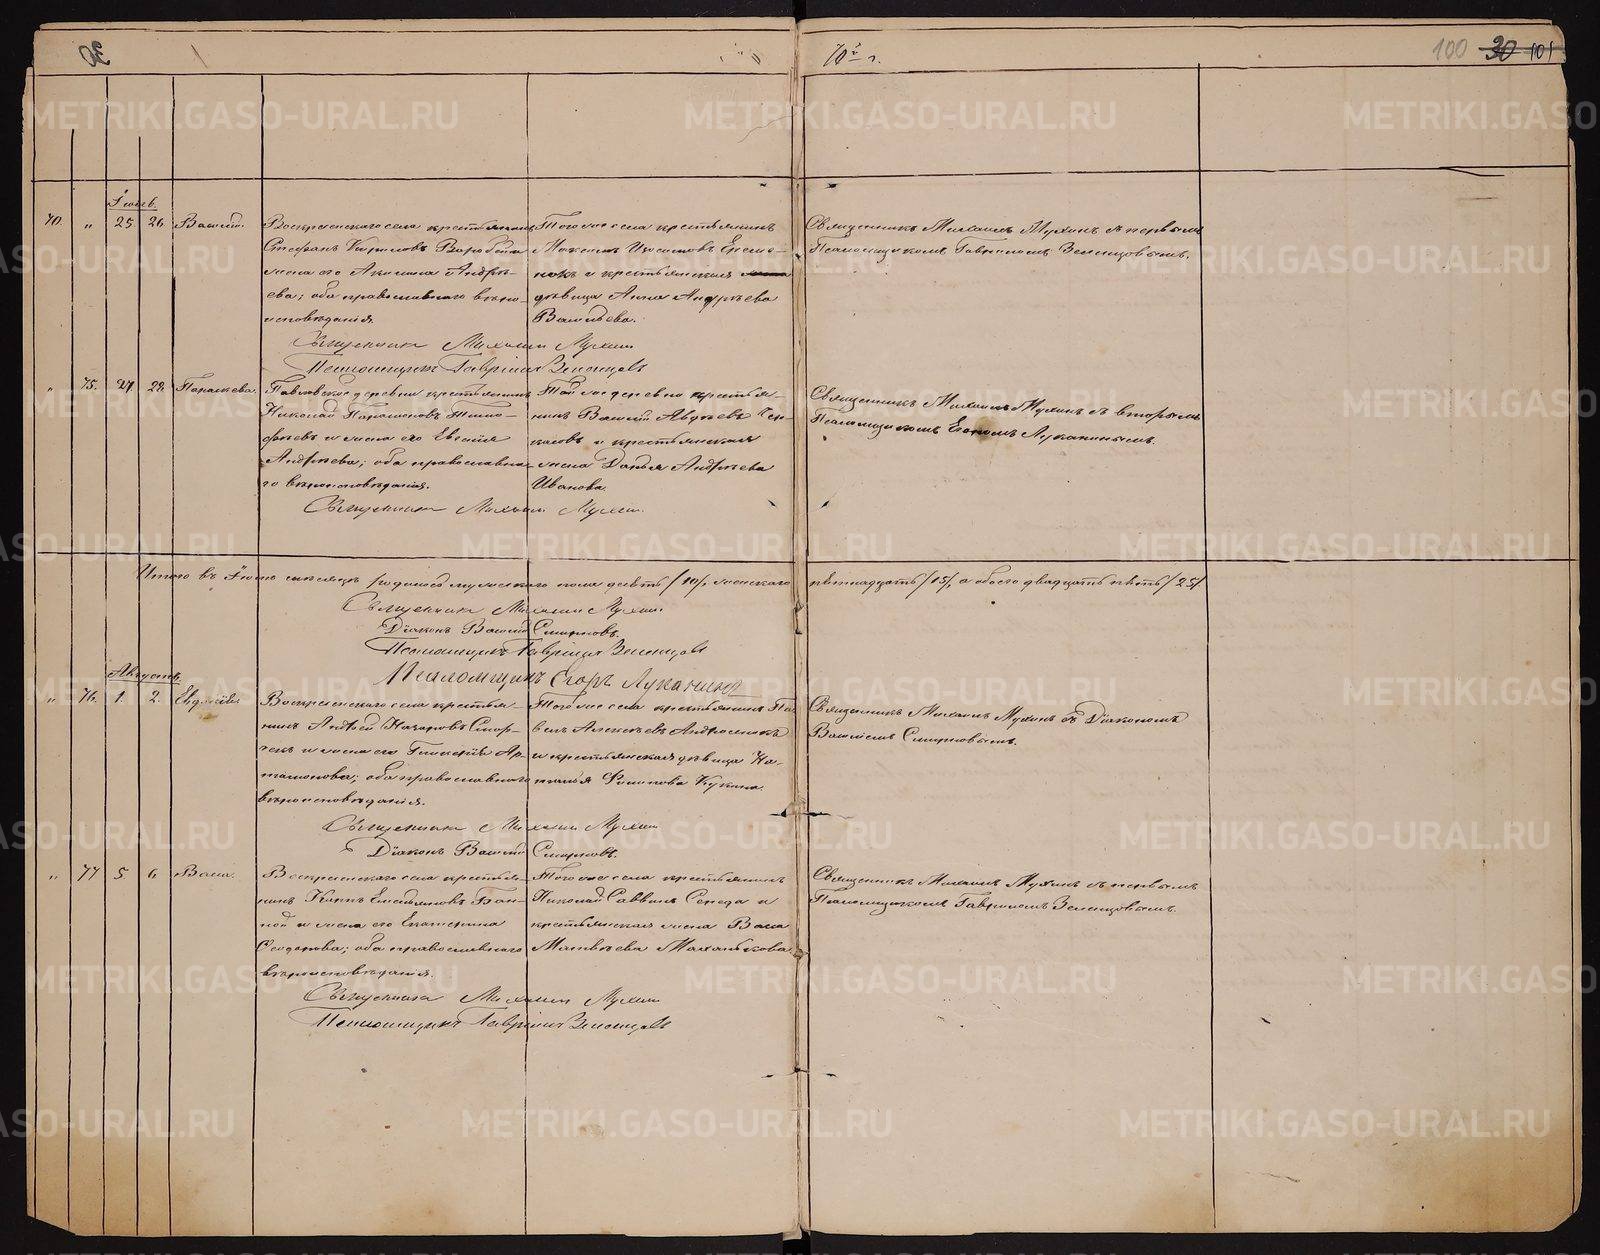 30
70
100 30 101
Іюль.
70. " 25 26 Василій.
Воскресенскаго села крестьянинъ
Стефанъ Кириловъ Воробьевъ
жена его Акилина Андрѣ-
ева; оба православнаго вѣро-
исповѣданія.
Того же села крестьянинъ
нокъ и крестьянская
дѣвица Анна Андрѣева
Васильева.
Священникъ Михаилъ Мухинъ съ первымъ
Псаломщикомъ Гавріиломъ Зеленцовымъ.
Священникъ Михаилъ Мухинъ
Псаломщикъ Гавріилъ Зеленцовъ
" 75. 27 28. Параскева.
Павловской деревни крестьянинъ
Николай Парамоновъ Тимо-
фѣевъ и жена его Евгенія
Андрѣева; оба православна-
го вѣроисповѣданія.
Той же деревни крестья-
нинъ Василій Авдѣевъ
и крестьянская
жена Дарья Андрѣева
Иванова.
Священникъ Михаилъ Мухинъ съ вторымъ
Псаломщикомъ Егоромъ Луканинымъ.
Священникъ Михаилъ Мухинъ.
Итого въ Іюлѣ мѣсяцѣ родилось мужескаго пола десять /10/, женскаго пятнадцать /15/, а обоего двадцать пять /25/.
Священникъ Михаилъ Мухинъ.
Діаконъ Василій Смирновъ.
Псаломщикъ Гавріилъ Зеленцовъ
Псаломщикъ Егоръ Луканинъ
Августъ.
" 76. 1. 2. Евдокія
Воскресенскаго села крестья-
нинъ Андрей Назаровъ
и жена его Гликерія Ар-
тамонова; оба православнаго
вѣроисповѣданія.
Того же села крестьянинъ Па-
велъ Алексѣевъ
и крестьянская дѣвица На-
талья Филипова Кукина.
Священникъ Михаилъ Мухинъ съ Діакономъ
Василіемъ Смирновымъ.
Священникъ Михаилъ Мухинъ
Діаконъ Василій Смирновъ.
" 77 5. 6. Васса.
Воскресенскаго села крестья-
нинъ Карпъ Емельяновъ
и жена его Екатерина
Ѳеодорова; оба православнаго
вѣроисповѣданія.
Того же села крестьянинъ
Николай Саввинъ Середа и
крестьянская жена Васса
Матвѣева Маханькова
Священникъ Михаилъ Мухинъ съ первымъ
Псаломщикомъ Гавріиломъ Зеленцовымъ.
Священникъ Михаилъ Мухинъ
Псаломщикъ Гавріилъ Зеленцовъ
METRIKI.GASO-URAL.RU